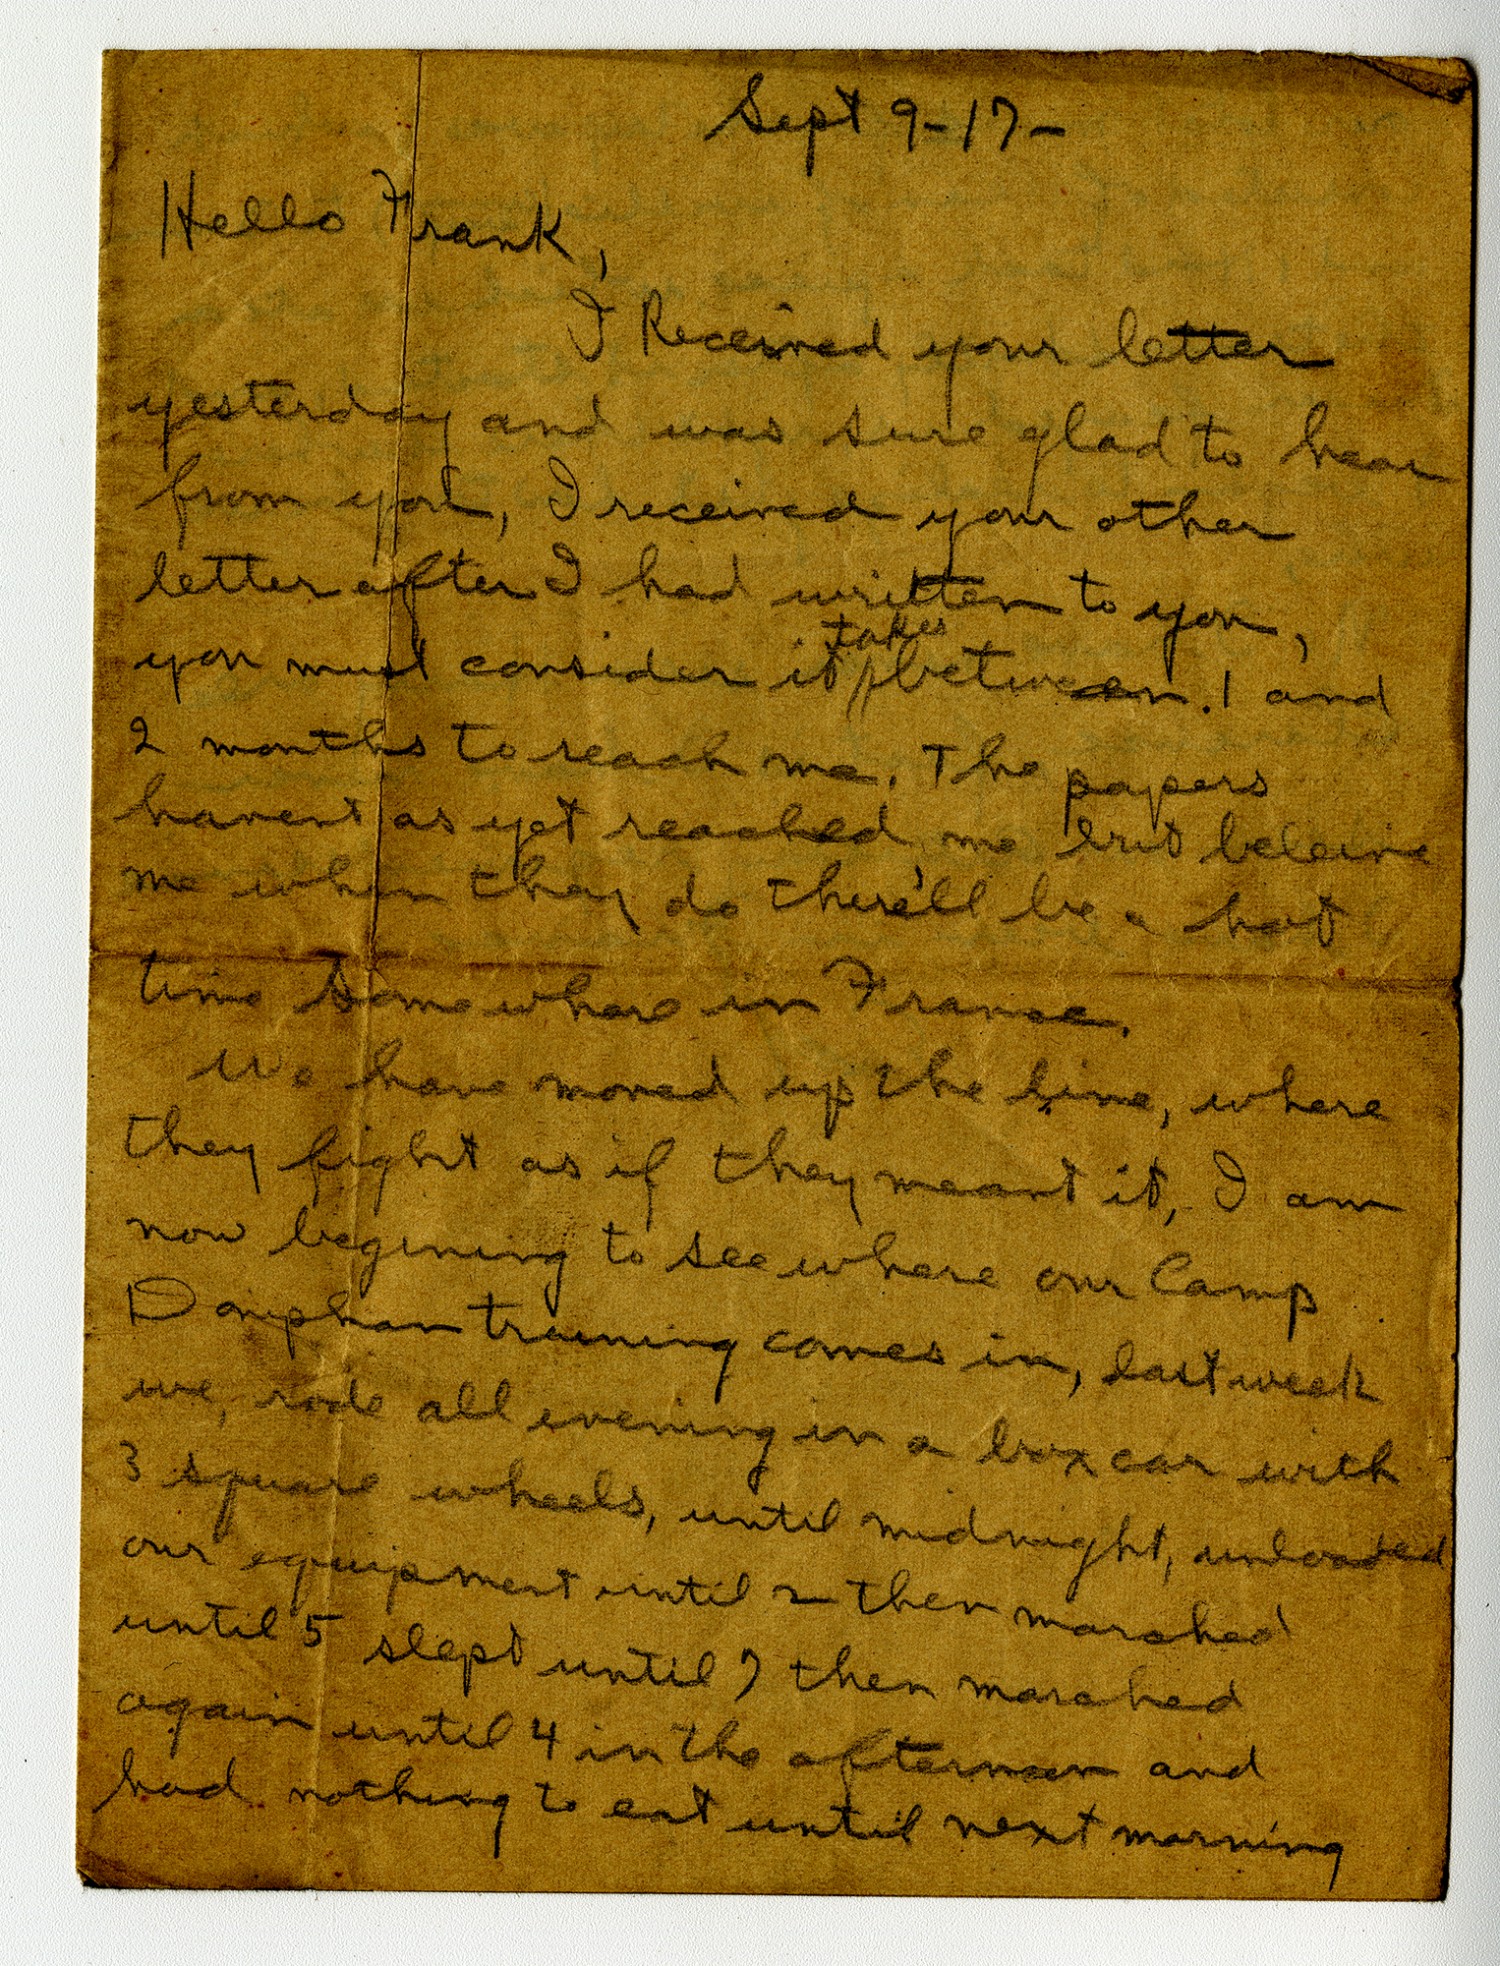 Sept 9-17-
Hello Frank,
I Received your letter
yesterday and was sure glad to hear
from you, I received your other
letter after I had written to you,
you must consider it takes between 1 and
2 months to reach me. The papers
havent as yet reached, me but beleive
me when they do there'll be a hot
time Somewhere in France.
We have moved up the line, where
they fight as if they meant it, I am
now begining to see where our Camp
Doniphan training comes in, last week
we, rode all evening in a box car with
3 square wheels, until midnight, unloaded
our equipment until 2 then marched
until 5 slept until 7 then marched
again until 4 in the afternoon and
had nothing to eat until next morning